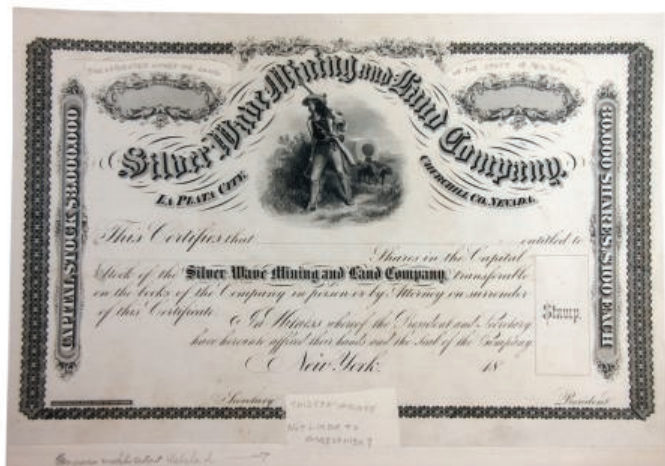 Silver Wave Mining and Land Company.
LA PLATA CITY,
CHURCHILL CO. NEVADA.
CAPITAL STOCK $3,000,000
30,000 SHARES $100 EACH
This Certifies that entitled to
Shares in the Capital
Stock of the Silver Wave Mining and Land Company, transferable
on the books of the Company in person or by Attorney on surrender
of this Certificate.
In Witness whereof the President and Secretary
have hereunto affixed their hands and the seal of the Company
New York, 18
Stamp.
Secretary
President